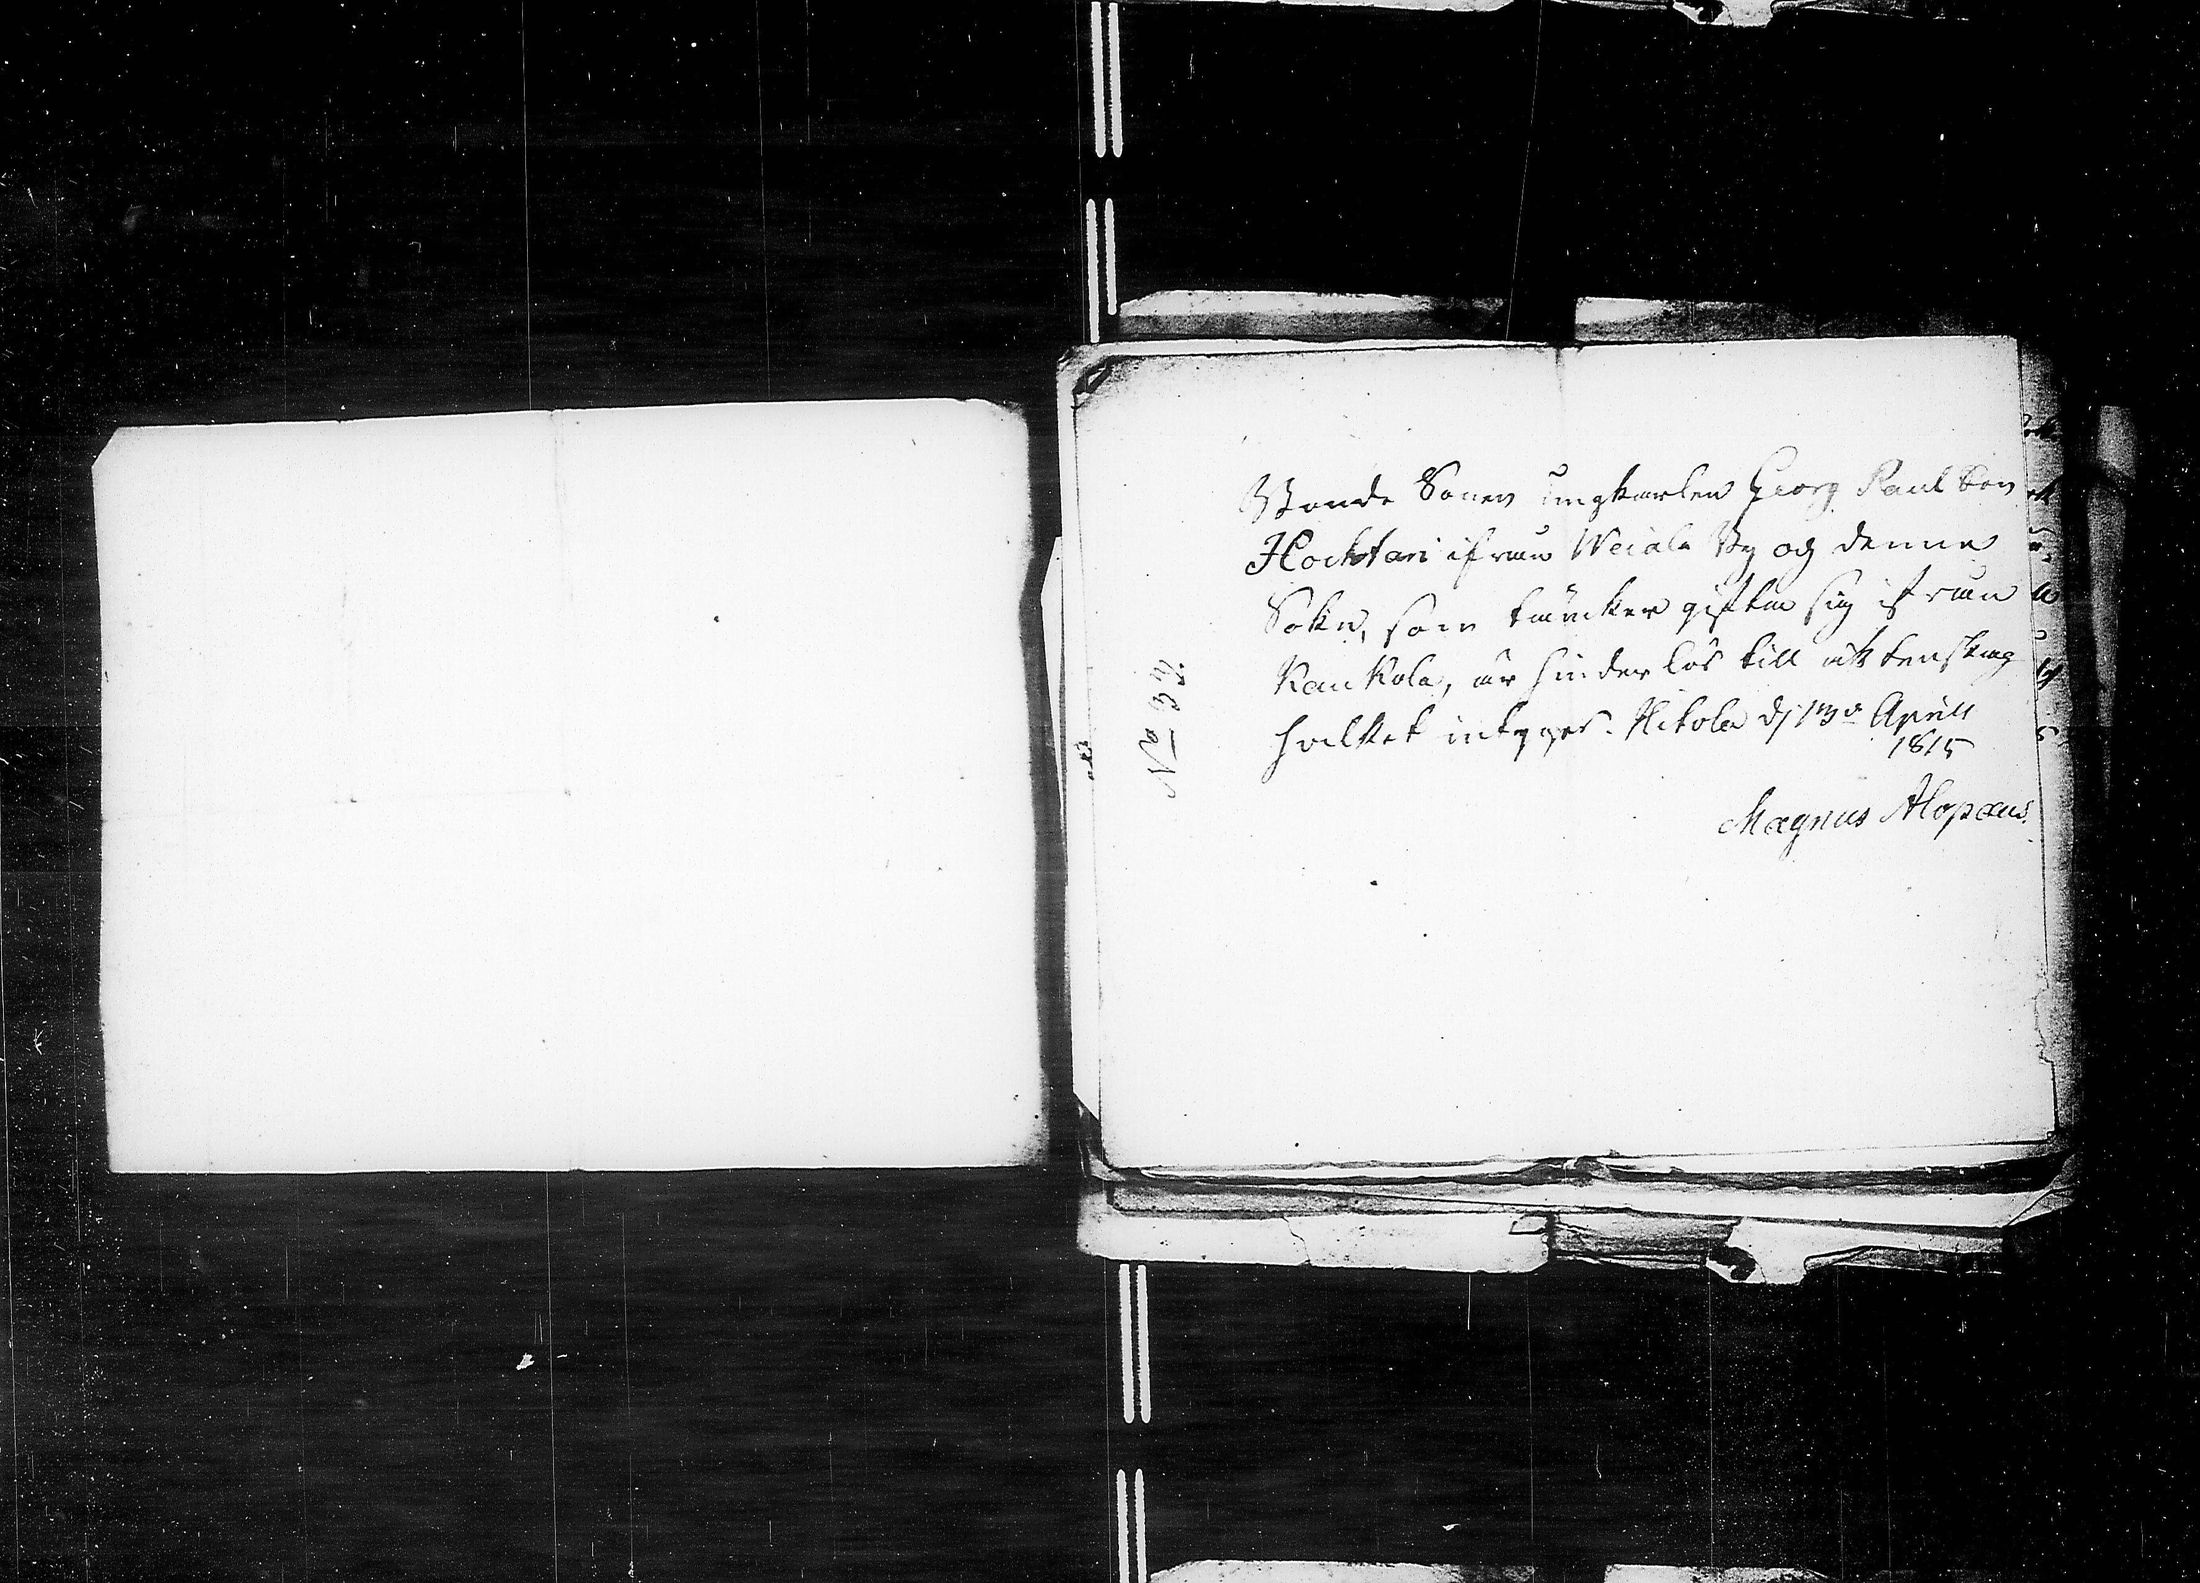 Bonde Sonen ungkarlen Georg Paul Son
Hocktari ifrån Weiala By og denna
Sokn, som täncker gifta sig ifrån
Kaukola, är hinderlös till äktenskap
hvilket intygas. Hitola d 1 April
1815
Magnus Alopæus.
No 32.